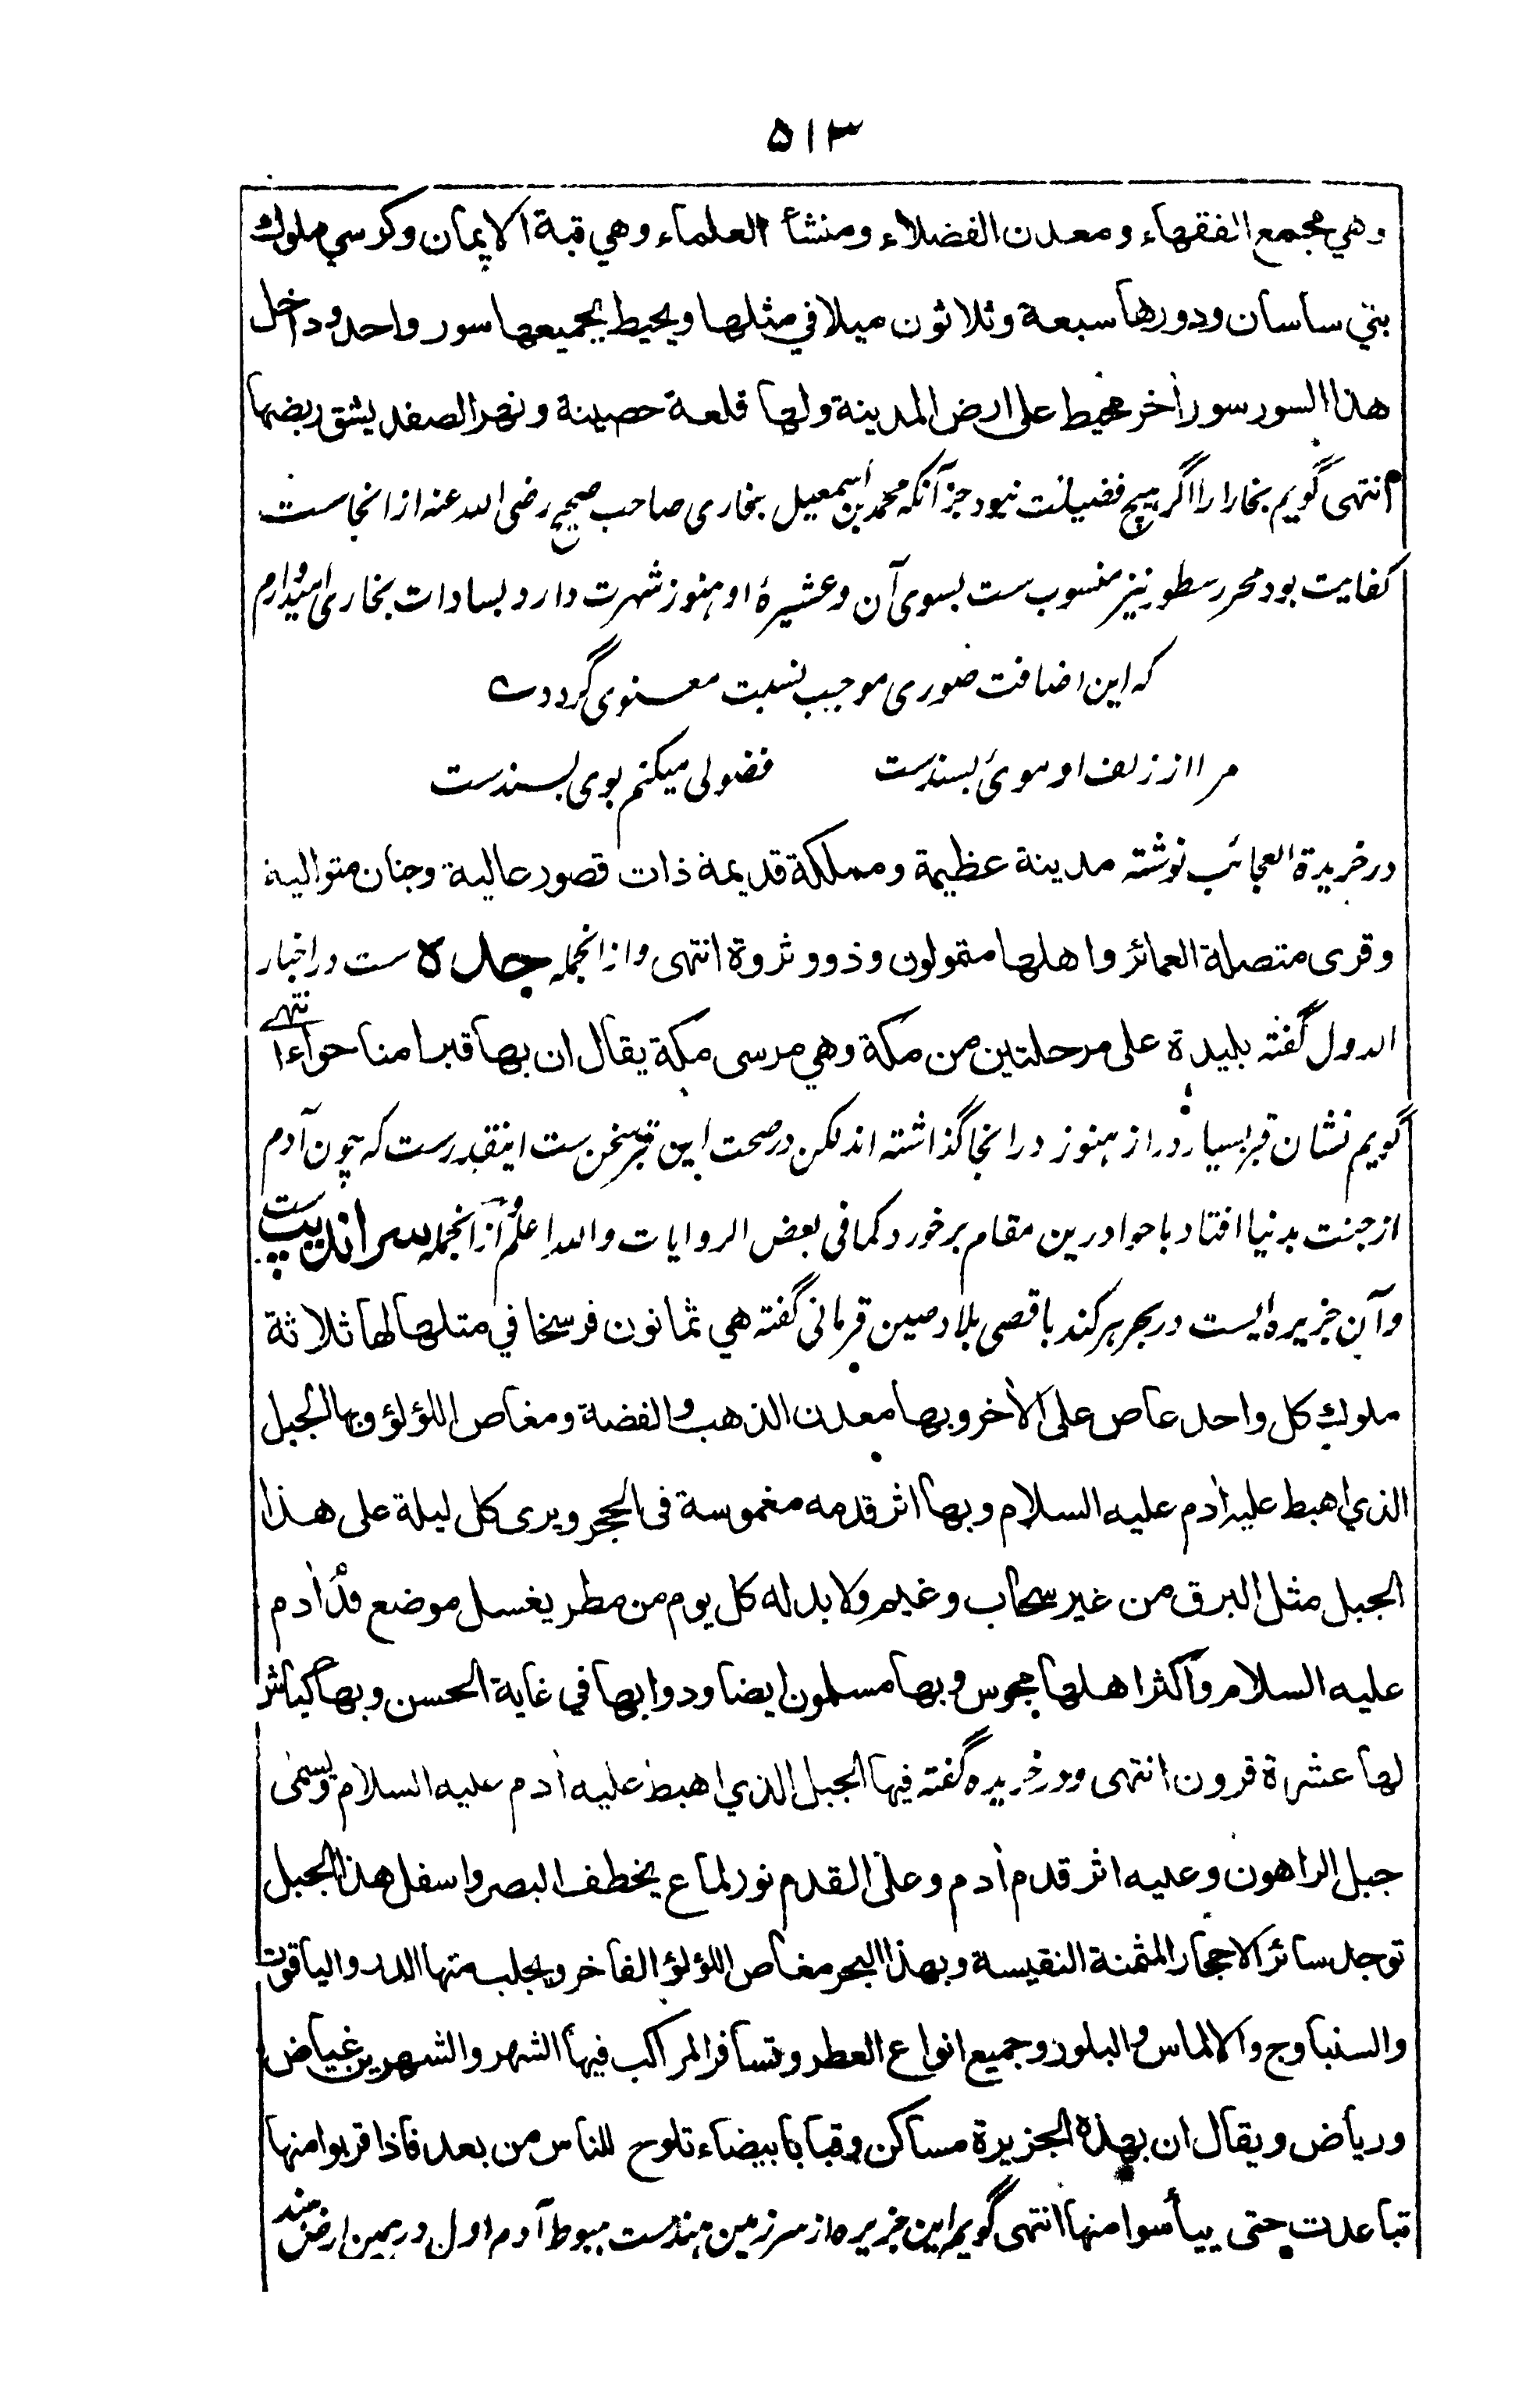 ۵۱۳
وهي مجمع الفقهاء ومعدن الفضلاء ومنشأ العلماء وهي قبة الايمان وكرسي ملوك
بني ساسان ودورها سبعة وثلاثون ميلا في مثلها ويحيط بجميعها سور واحد وداخل
هذا السور سور أخر محيط على ارض المدينة ولها قلعة حصينة ونهر الصغد يشق ربضها
انتهى گويم بخارا را اگر هيچ فضيلت نبود جز آنكه محمد بن اسمعيل بخارى صاحب صحيح رضى الله عنه از انجاست
كفايت بود محرر سطور نيز منسوب ست بسوى آن و عشيرۀ او هنوز شهرت دارد بسادات بخارى و اميدوارم
كه اين اضافت صورى موجب نسبت معنوى گردد ے
مرا از زلف او موئ بسندست فضولى ميكنم بوى بسندست
در خريدة العجائب نوشته مدينة عظيمة ومملكة قديمة ذات قصور عالية وجنان متوالية
وقرى متصلة العمائر واهلها متمولون وذوو ثروة انتهى و از انجمله جده ست در اخبار
الدول گفته بليدة على مرحلتين من مكة وهي مرسى مكة يقال ان بها قبر امنا حواء انتهى
گويم نشان قبر بسيار دراز هنوز در انجا گذاشته اند لكن در صحت اين قبر سخن ست اينقدر ست كه چون آدم
از جنت بدنيا افتاد با حوا درين مقام برخورد كما فى بعض الروايات والله اعلم و از انجمله سرانديپ ست
و آن جزيره ايست در بحر هركند باقصى بلاد صين قرمانى گفته هي ثمانون فرسخا في مثلها لها ثلاثة
ملوك كل واحد عاص على الأخر وبها معدن الذهب والفضة ومغاص اللؤلؤ وبها الجبل
الذي اهبط عليه أدم عليه السلام وبها اثر قدمه مغموسة فى الحجر ويرى كل ليلة على هذا
الجبل مثل البرق من غير سحاب وغيم ولا بد له كل يوم من مطر يغسل موضع قدم أدم
عليه السلام واكثر اهلها مجوس وبها مسلمون ايضا ودوابها في غاية الحسن وبها كباش
لها عشرة قرون انتهى و در خريده گفته فيها الجبل الذي اهبط عليه أدم عليه السلام ويسمى
جبل الراهون وعليه اثر قدم أدم وعلى القدم نور لماع يخطف البصر واسفل هذا الجبل
توجد سائر الاحجار المثمنة النفيسة وبهذا البحر مغاص اللؤلؤ الفاخر ويجلب منها الدر والياقوت
والسنباوج والالماس والبلور وجميع انواع العطر وتسافر المراكب فيها الشهر والشهرين غياض
ورياض ويقال ان بهذه الجزيرة مساكن وقبابا بيضاء تلوح للناس من بعد فاذا قربوا منها
تباعدت حتى ييأسوا منها انتهى گويم اين جزيره از سرزمين هندست هبوط آدم اول در همين ارض هند